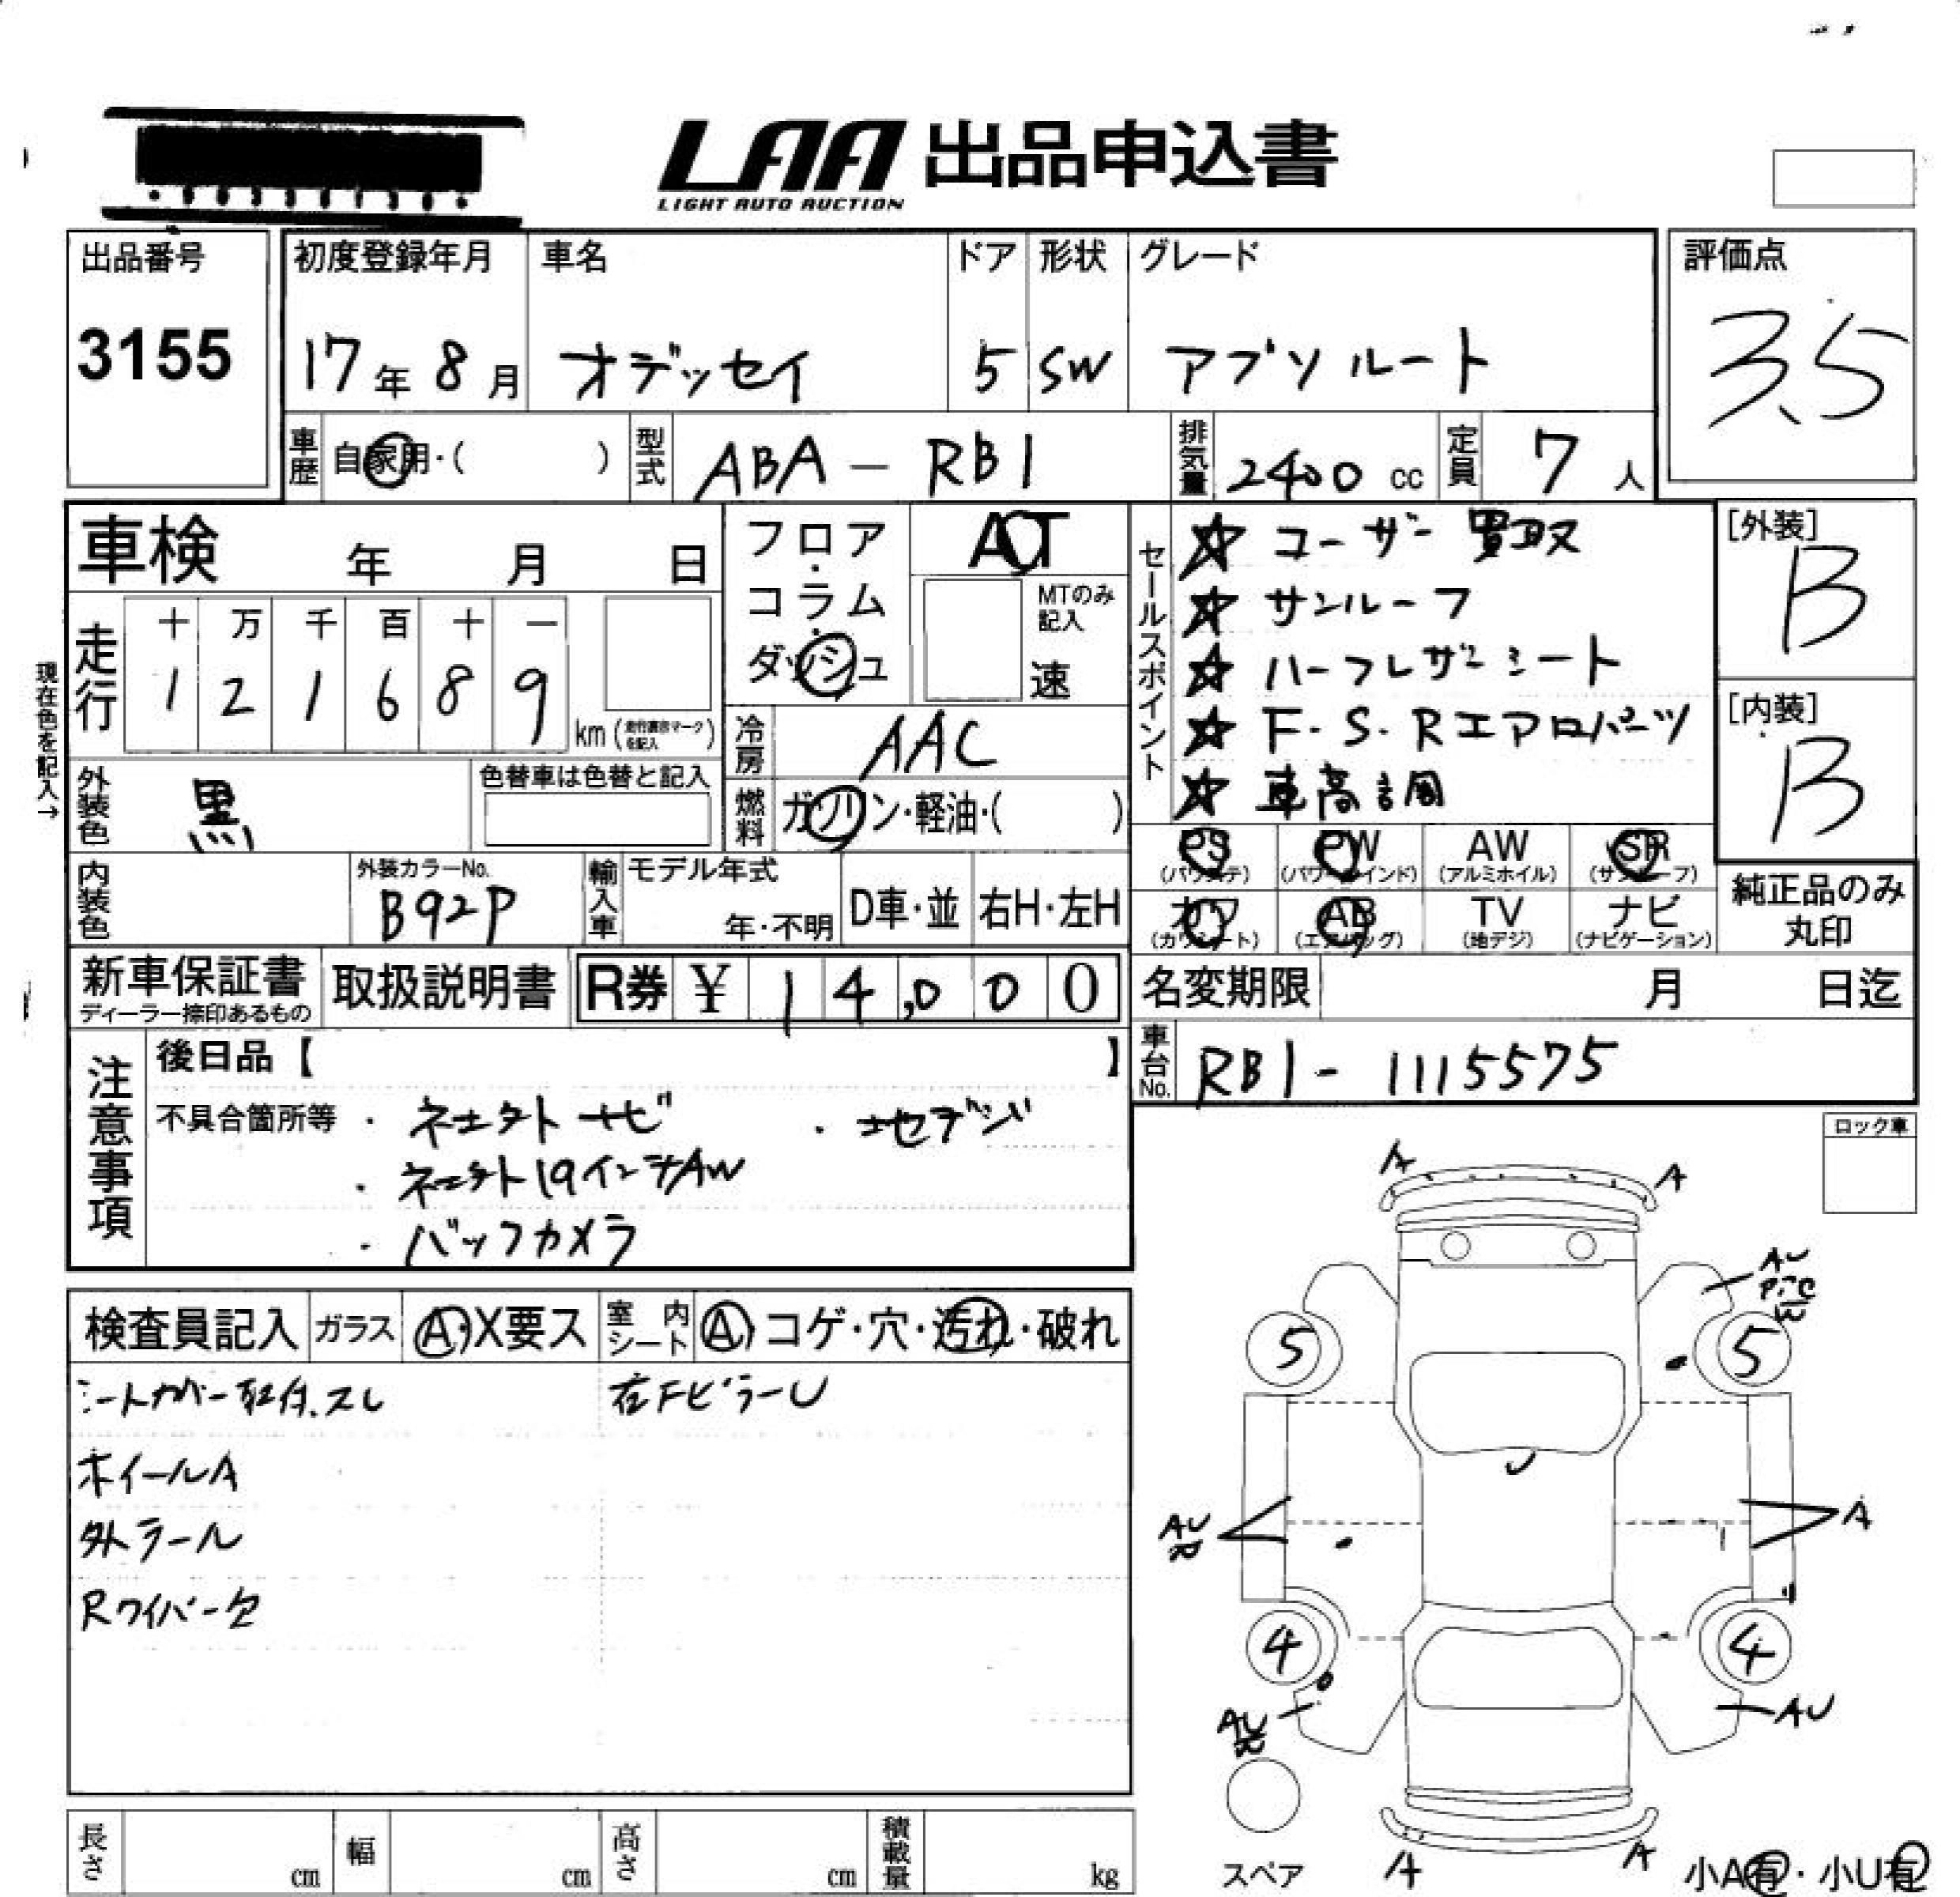 LAA 出品申込書
LIGHT AUTO AUCTION
出品番号
3155
初度登録年月
17年8月
車名
オデッセイ
ドア
5
形状
SW
グレード
アブソルート
評価点
3.5
車歴
自家用・( )
型式
ABA-RB1
排気量
2400 cc
定員
7人
車検 年 月 日
フロア・コラム・ダッシュ
AT
MTのみ記入
速
セールスポイント
☆ユーザー買取
☆サンルーフ
☆ハーフレザーシート
☆F・S・Rエアロパーツ
☆車高調
[外装]
B
[内装]
B
現在色を記入→
走行
十 万 千 百 十 一
1 2 1 6 8 9
km(走行裏告マークを記入)
冷房
AAC
外装色
黒
色替車は色替と記入
燃料
ガソリン・軽油・( )
PS AW SR
PW
(パワステ) (パワーウインド) (アルミホイル) (サンルーフ)
カワ AB TV ナビ
(カワシート) (エアバッグ) (地デジ) (ナビゲーション)
純正品のみ丸印
内装色
外装カラーNo.
B92P
輸入車
モデル年式
年・不明
D車・並
右H・左H
新車保証書
ディーラー捺印あるもの
取扱説明書
R券 ¥ 14,000
名変期限 月 日迄
車台No.
RB1-1115575
注意事項
後日品【 】
不具合箇所等
・ナビ
・19インチAW
・バックカメラ
ロック車
検査員記入
ガラス
A・X要ス
室内シート
A・コゲ・穴・汚れ・破れ
シートカバー取付.スレ
右FピラーU
ホイールA
外ラール
Rワイパー欠
A
A
AU
5
5
U
AU
A
4
4
AU
AU
A
A
スペア
小A有・小U有
長さ cm
幅 cm
高さ cm
積載量 kg